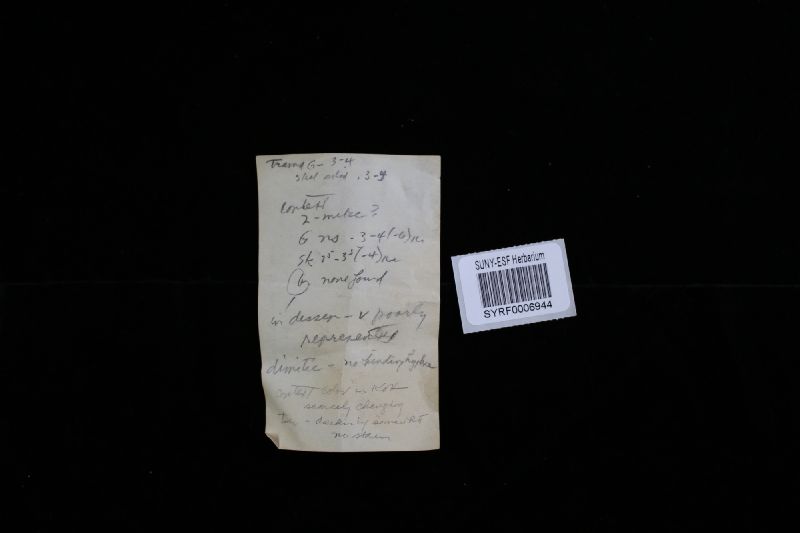 Trama G - 3-4
skel . 3-4
context
2-mitic?
G ns - 3-4(-6)
Sk 2⁵-3⁵(-4)
B none found
in dissep - v poorly
represented
dimitic - no binding hyphae
context color in KOH
scarcely changing
- darkening somewhat
no stain
SUNY-ESF Herbarium
SYRF0006944